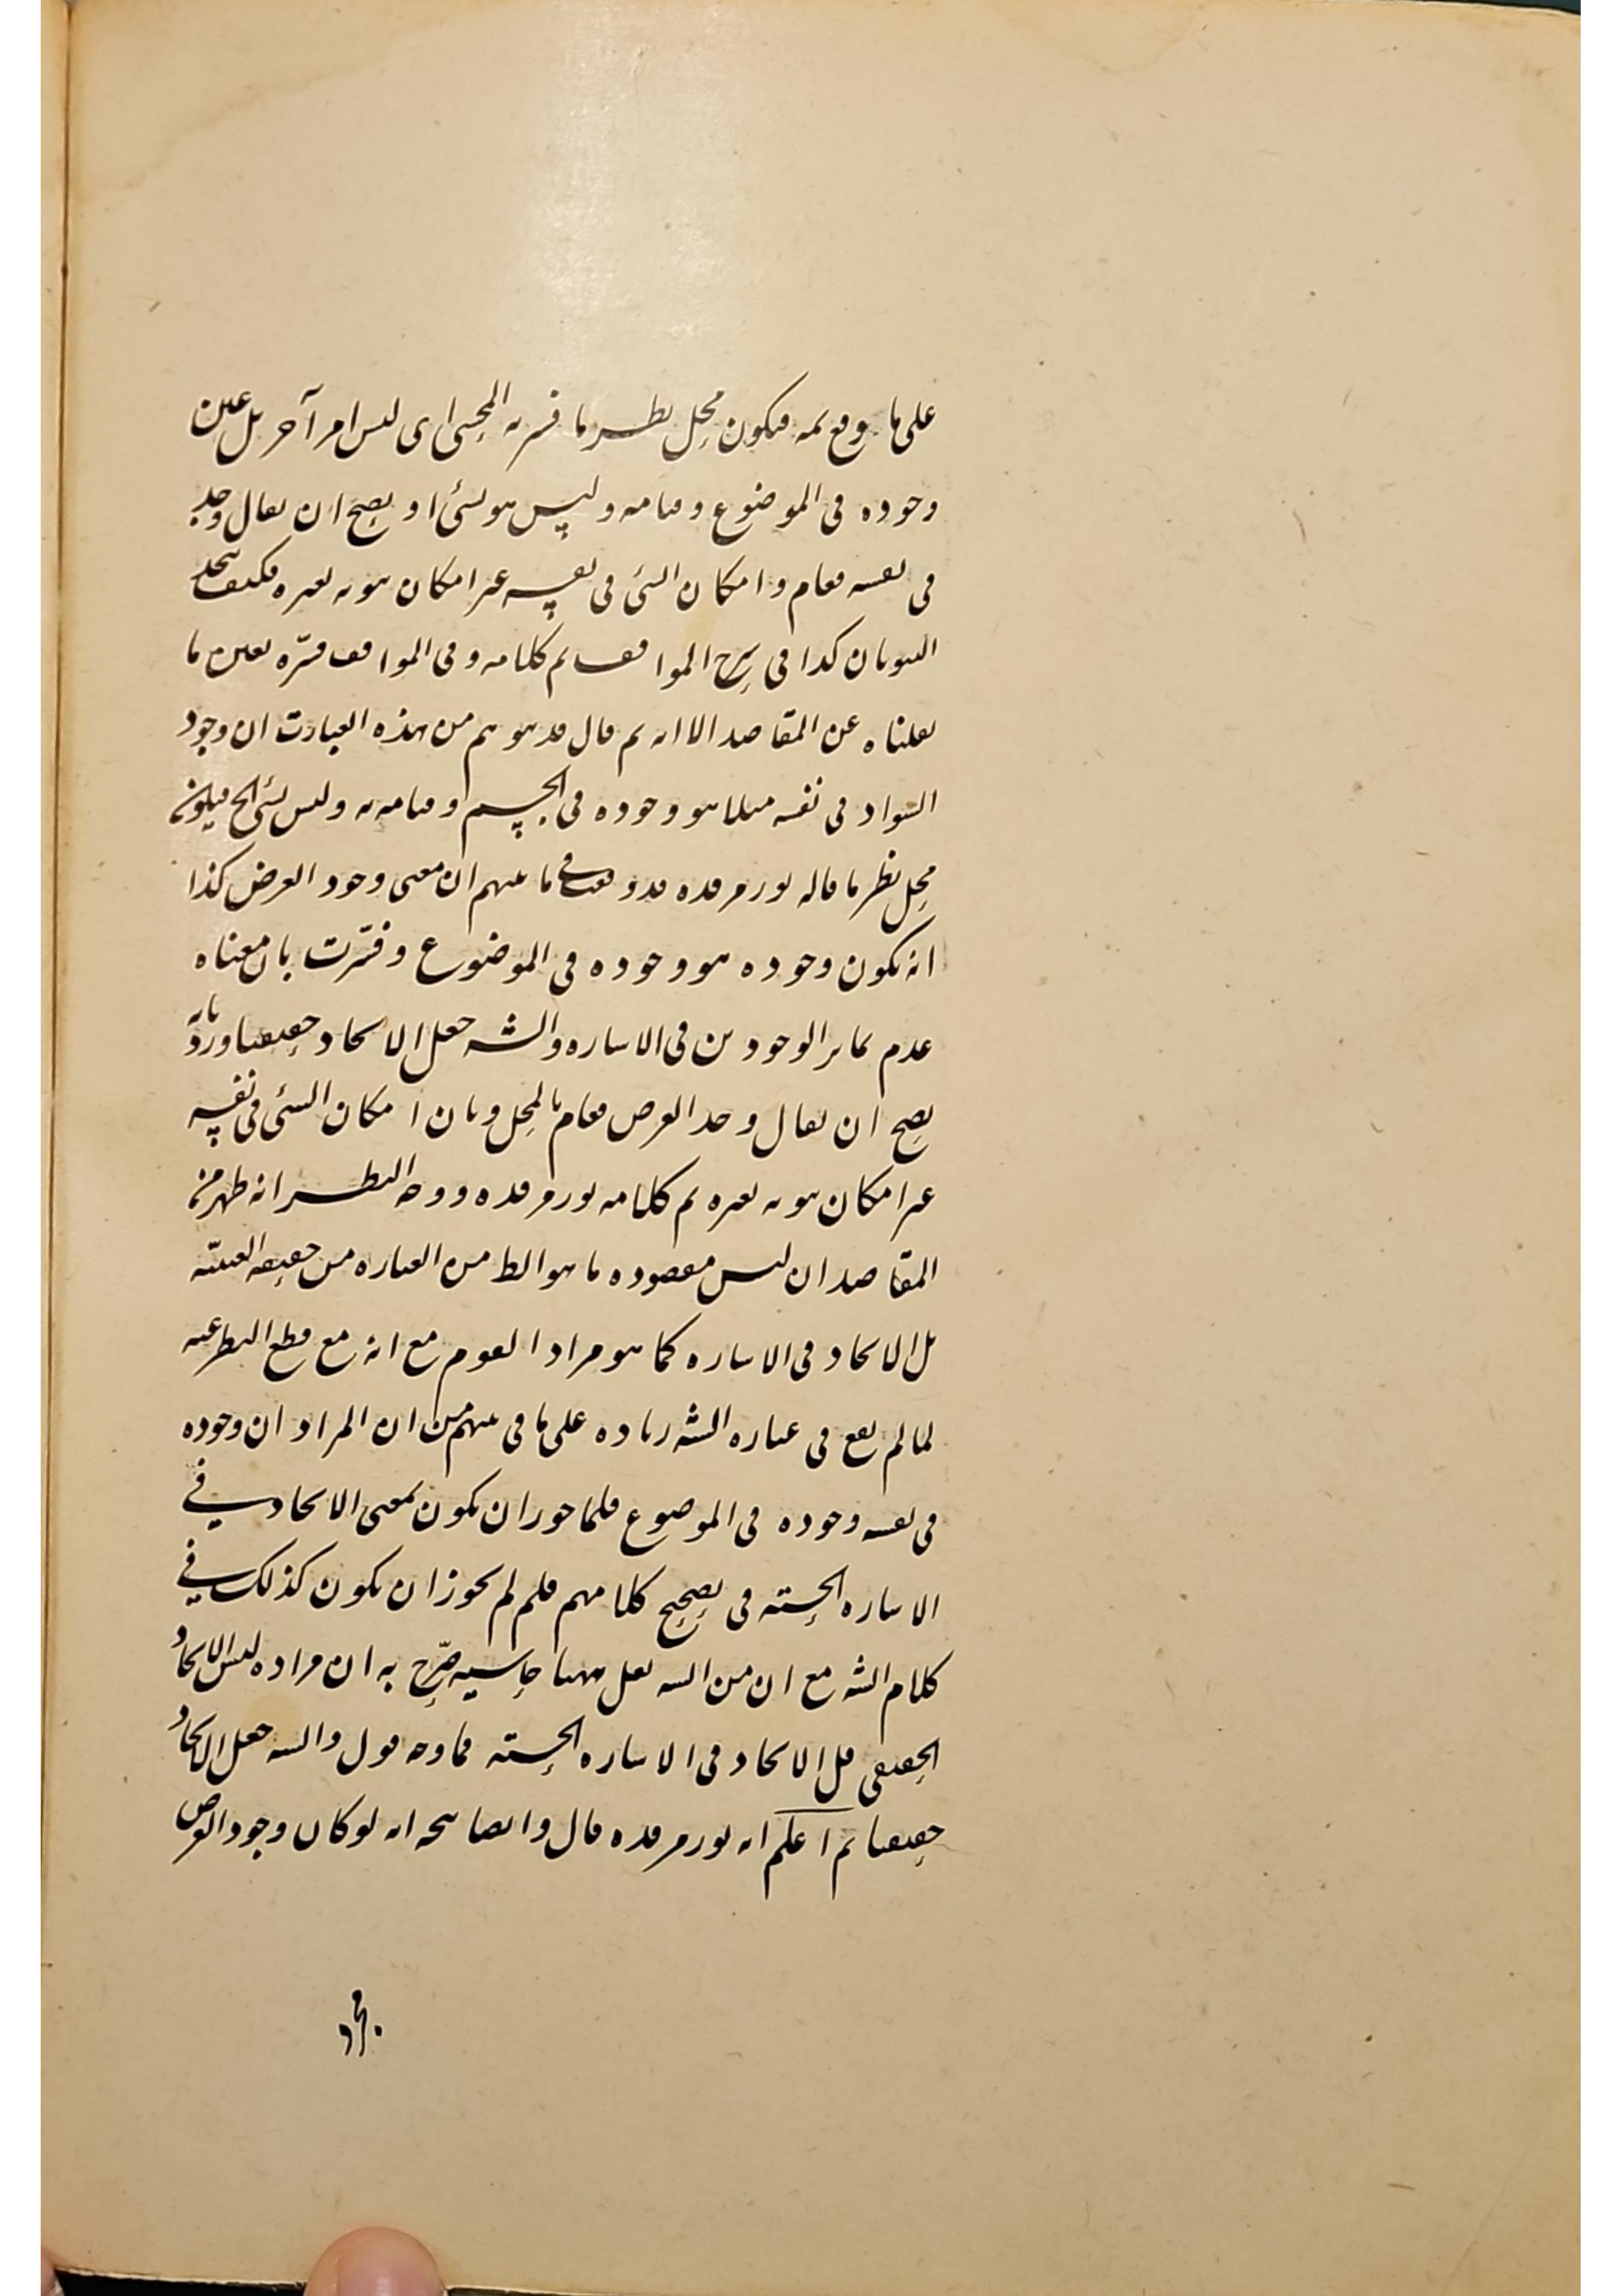 على ما وقع ثمه فيكون محل نظر ما فسر به المحشى اى ليس امرا آخر بل عين
وجوده فى الموضوع وقيامه وليس هو بشئ او يصح ان يقال وجد
فى نفسه فقام وامكان الشئ فى نفسه غير امكان ثبوته لغيره فكيف يتحد
الثبوتان كذا فى شرح المواقف تم كلامه وفى المواقف فسّره بعين ما
نقلناه عن المقاصد الا انه ثم قال قد يتوهم من هذه العبارت ان وجود
السواد فى نفسه مثلا هو وجوده فى الجسم وقيامه به وليس بشئ الخ فيكون
محل نظر ما قاله نور مرقده قد وقع فى ما بينهم ان معنى وجود العرض كذا
انه يكون وجوده هو وجوده فى الموضوع وفسّرت بان معناه
عدم تمايز الوجودين فى الاشاره والشه جعل الاتحاد حقيقيا وردّ بانه
يصح ان يقال وجد العرض فقام بالمحل وبان امكان الشئ فى نفسه
غير امكان ثبوته لغيره تم كلامه نور مرقده ووجه النظر انه ظهر من
المقاصد ان ليس مقصوده ما هو الظ من العباره من حقيقه العينيّه
بل الاتحاد فى الاشاره كما هو مراد القوم مع انه مع قطع النظر عنه
لما لم يقع فى عباره الشه زياده على ما فى بينهم من ان المراد ان وجوده
فى نفسه وجوده فى الموضوع فلما جوز ان يكون بمعنى الاتحاد فى
الاشاره الحسّيه فى تصحيح كلامهم فلم لم يجوز ان يكون كذلك فى
كلام الشه مع ان من الشه نقل ههنا حاشيه صرّح به ان مراده ليس الاتحاد
الحقيقى بل الاتحاد فى الاشاره الحسّيه فما وجه قول والشه جعل الاتحاد
حقيقيا ثم اعلم انه نور مرقده قال وايضا يتجه انه لو كان وجود العرض